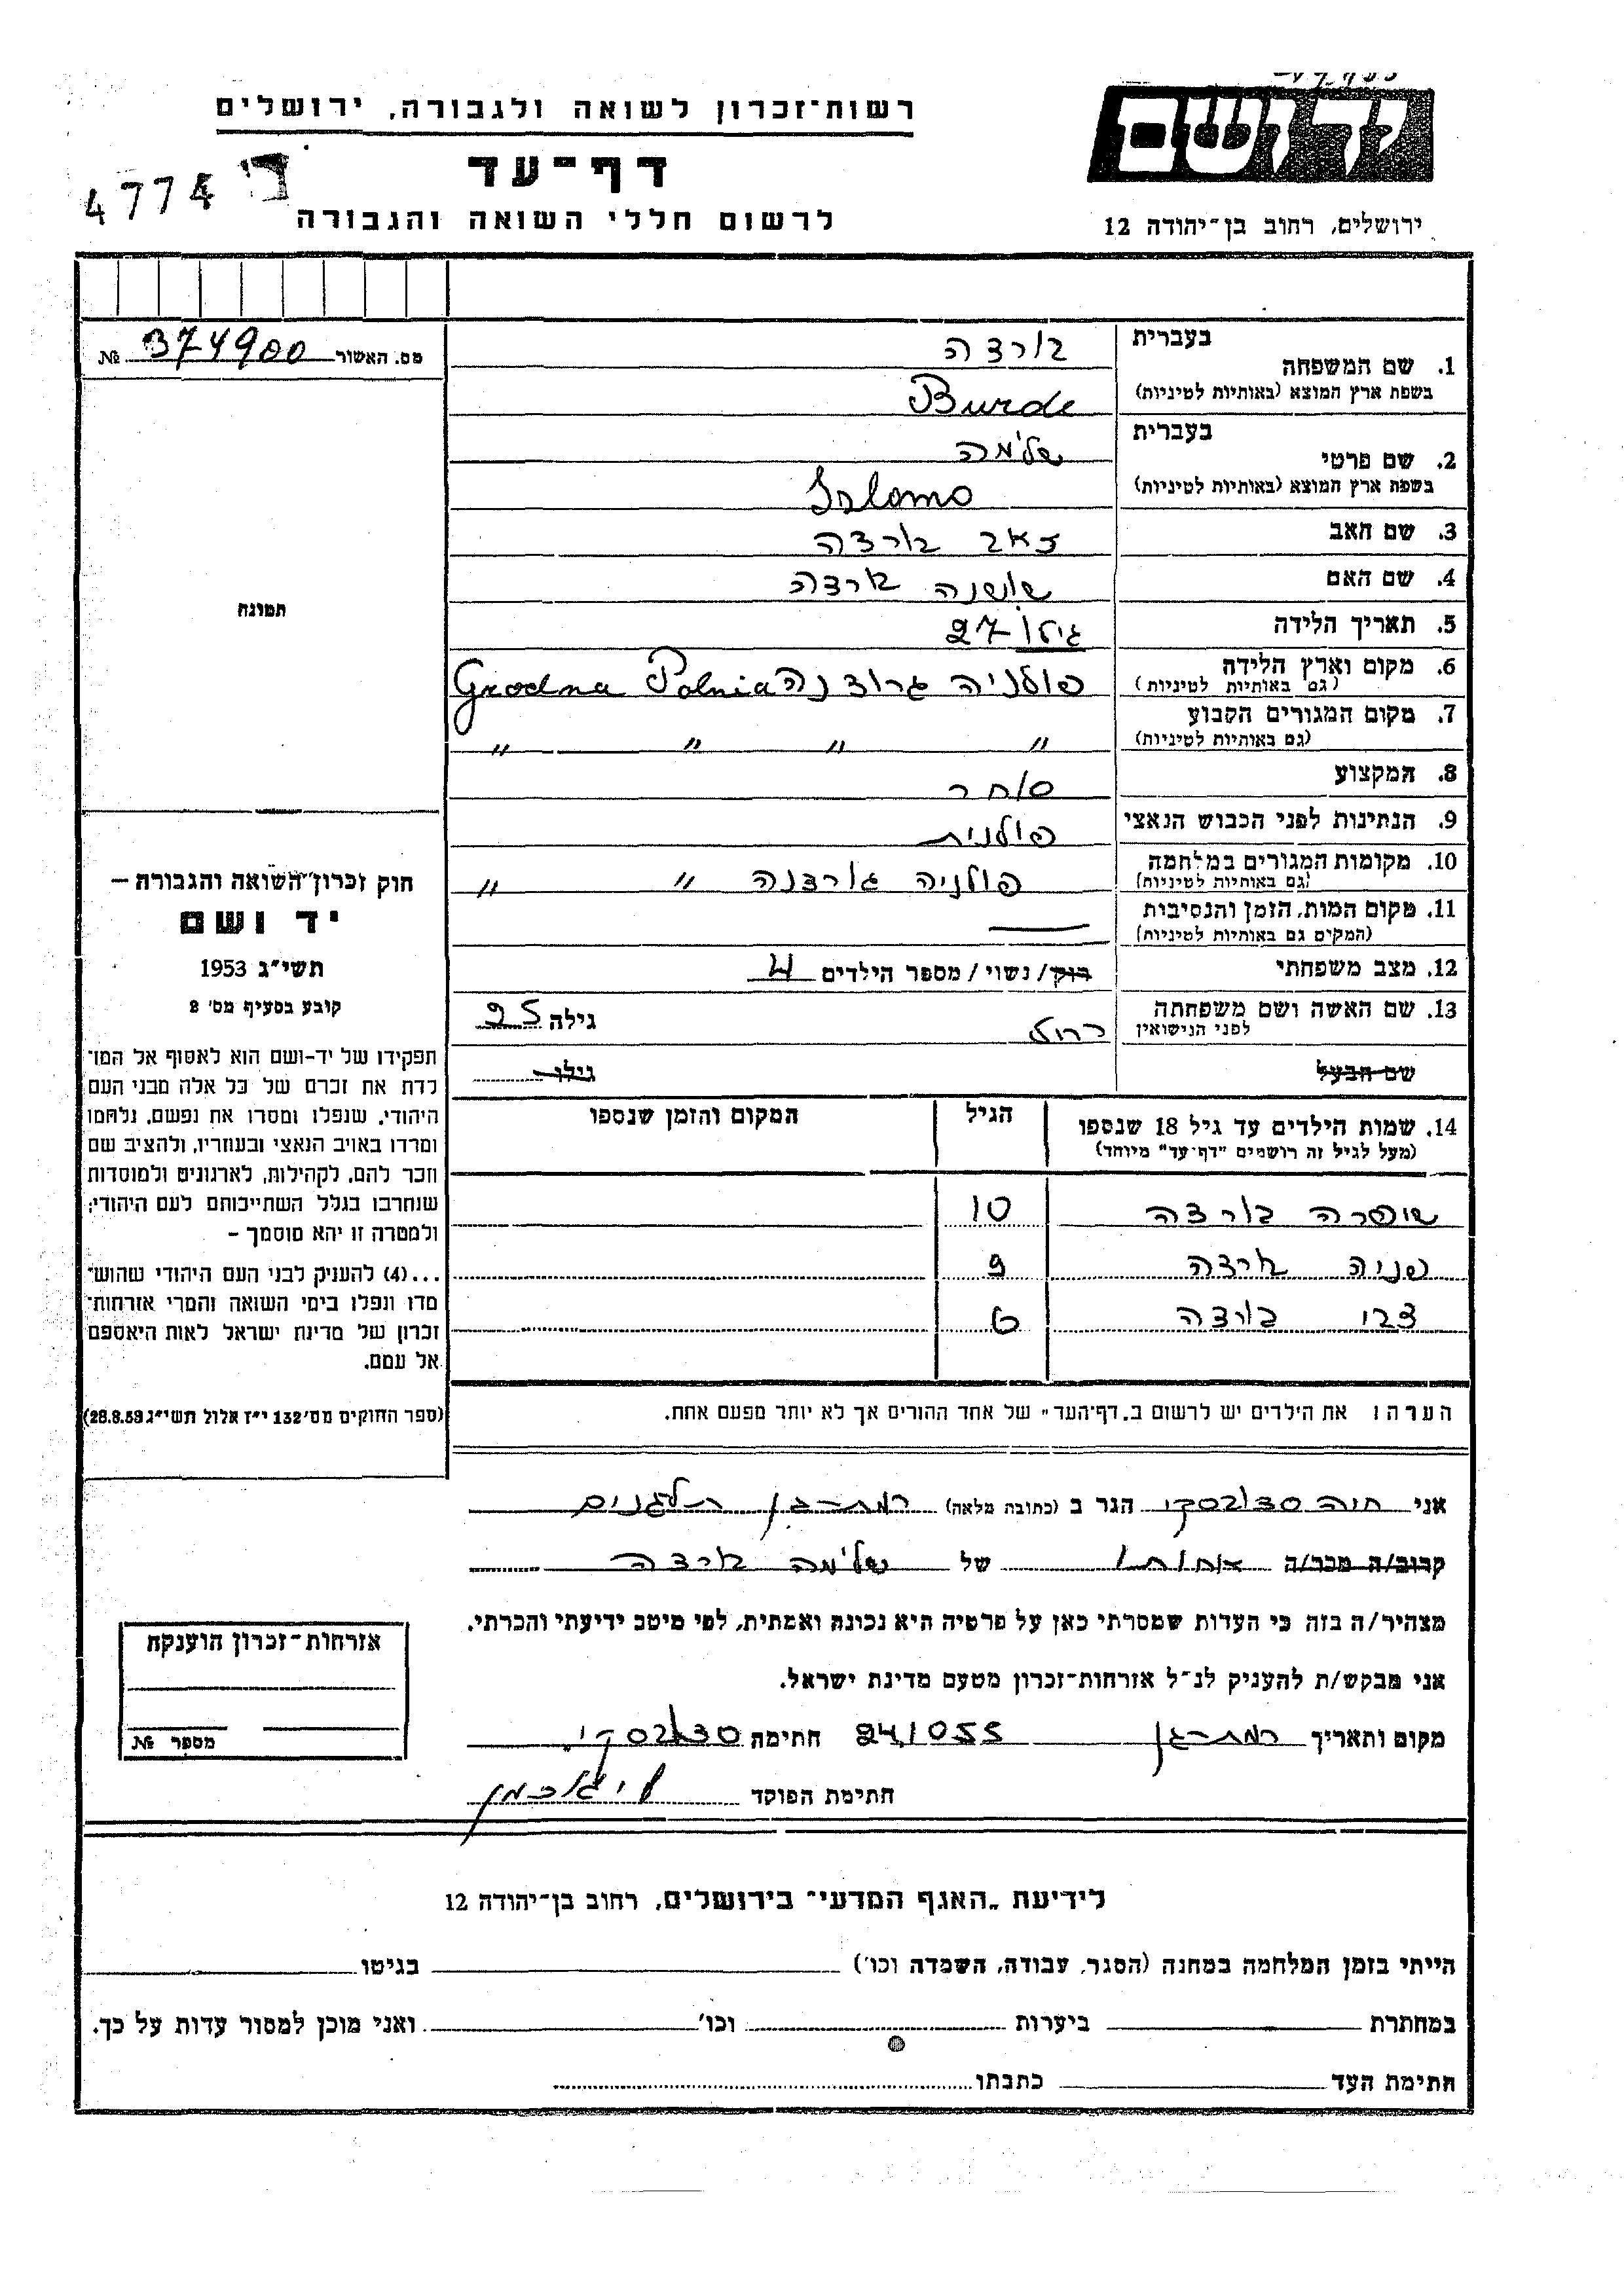 רשות־זכרון לשואה ולגבורה, ירושלים
יד ושם
דף־עד
4774
לרשום חללי השואה והגבורה
ירושלים, רחוב בן־יהודה 12
מס. האשור 374900 №
תמונה
בעברית בורדה
1. שם המשפחה
בשפת ארץ המוצא (באותיות לטיניות) Burde
בעברית שלמה
2. שם פרטי
בשפת ארץ המוצא (באותיות לטיניות) Solomo
3. שם האב זאב בורדה
4. שם האם שושנה בורדה
5. תאריך הלידה גילו 27
6. מקום וארץ הלידה פולניה גרודנה Grodna Polnia
(גם באותיות לטיניות)
7. מקום המגורים הקבוע
(גם באותיות לטיניות) " " " "
8. המקצוע סוחר
9. הנתינות לפני הכבוש הנאצי פולנית
10. מקומות המגורים במלחמה פולניה גורדנה " "
(גם באותיות לטיניות)
11. מקום המות, הזמן והנסיבות
(המקום גם באותיות לטיניות)
12. מצב משפחתי רווק / נשוי / מספר הילדים 4
13. שם האשה ושם משפחתה רחל גילה 25
לפני הנישואין
שם הבעל גילו
14. שמות הילדים עד גיל 18 שנספו הגיל המקום והזמן שנספו
(מעל לגיל זה רושמים "דף־עד" מיוחד)
שפרה בורדה 10
פניה בורדה 9
צבי בורדה 6
הערה: את הילדים יש לרשום ב„דף־העד" של אחד ההורים אך לא יותר מפעם אחת.
חוק זכרון־השואה והגבורה –
יד ושם
תשי"ג 1953
קובע בסעיף מס' 2
תפקידו של יד-ושם הוא לאסוף אל המו־
לדת את זכרם של כל אלה מבני העם
היהודי, שנפלו ומסרו את נפשם, נלחמו
ומרדו באויב הנאצי ובעוזריו, ולהציב שם
וזכר להם, לקהילות, לארגונים ולמוסדות
שנחרבו בגלל השתייכותם לעם היהודי;
ולמטרה זו יהא מוסמך –
...(4) להעניק לבני העם היהודי שהוש־
מדו ונפלו בימי השואה והמרי אזרחות־
זכרון של מדינת ישראל לאות היאספם
אל עמם.
(ספר החוקים מס' 132 י"ז אלול תשי"ג 28.8.53)
אני חיה סובסקי הגר ב (כתובת מלאה) רמת-גן תל-גנים
קרוב/ה מכר/ה אחותו של שלמה בורדה
מצהיר/ה בזה כי העדות שמסרתי כאן על פרטיה היא נכונה ואמתית, לפי מיטב ידיעתי והכרתי.
אני מבקש/ת להעניק לנ"ל אזרחות־זכרון מטעם מדינת ישראל.
מקום ותאריך רמת-גן 24.10.55 חתימה
חתימת הפוקד
אזרחות־זכרון הוענקה
מספר №
לידיעת „האגף המדעי" בירושלים, רחוב בן־יהודה 12
הייתי בזמן המלחמה במחנה (הסגר, עבודה, השמדה וכו') בגיטו
במחתרת ביערות וכו' ואני מוכן למסור עדות על כך.
חתימת העד כתבתו